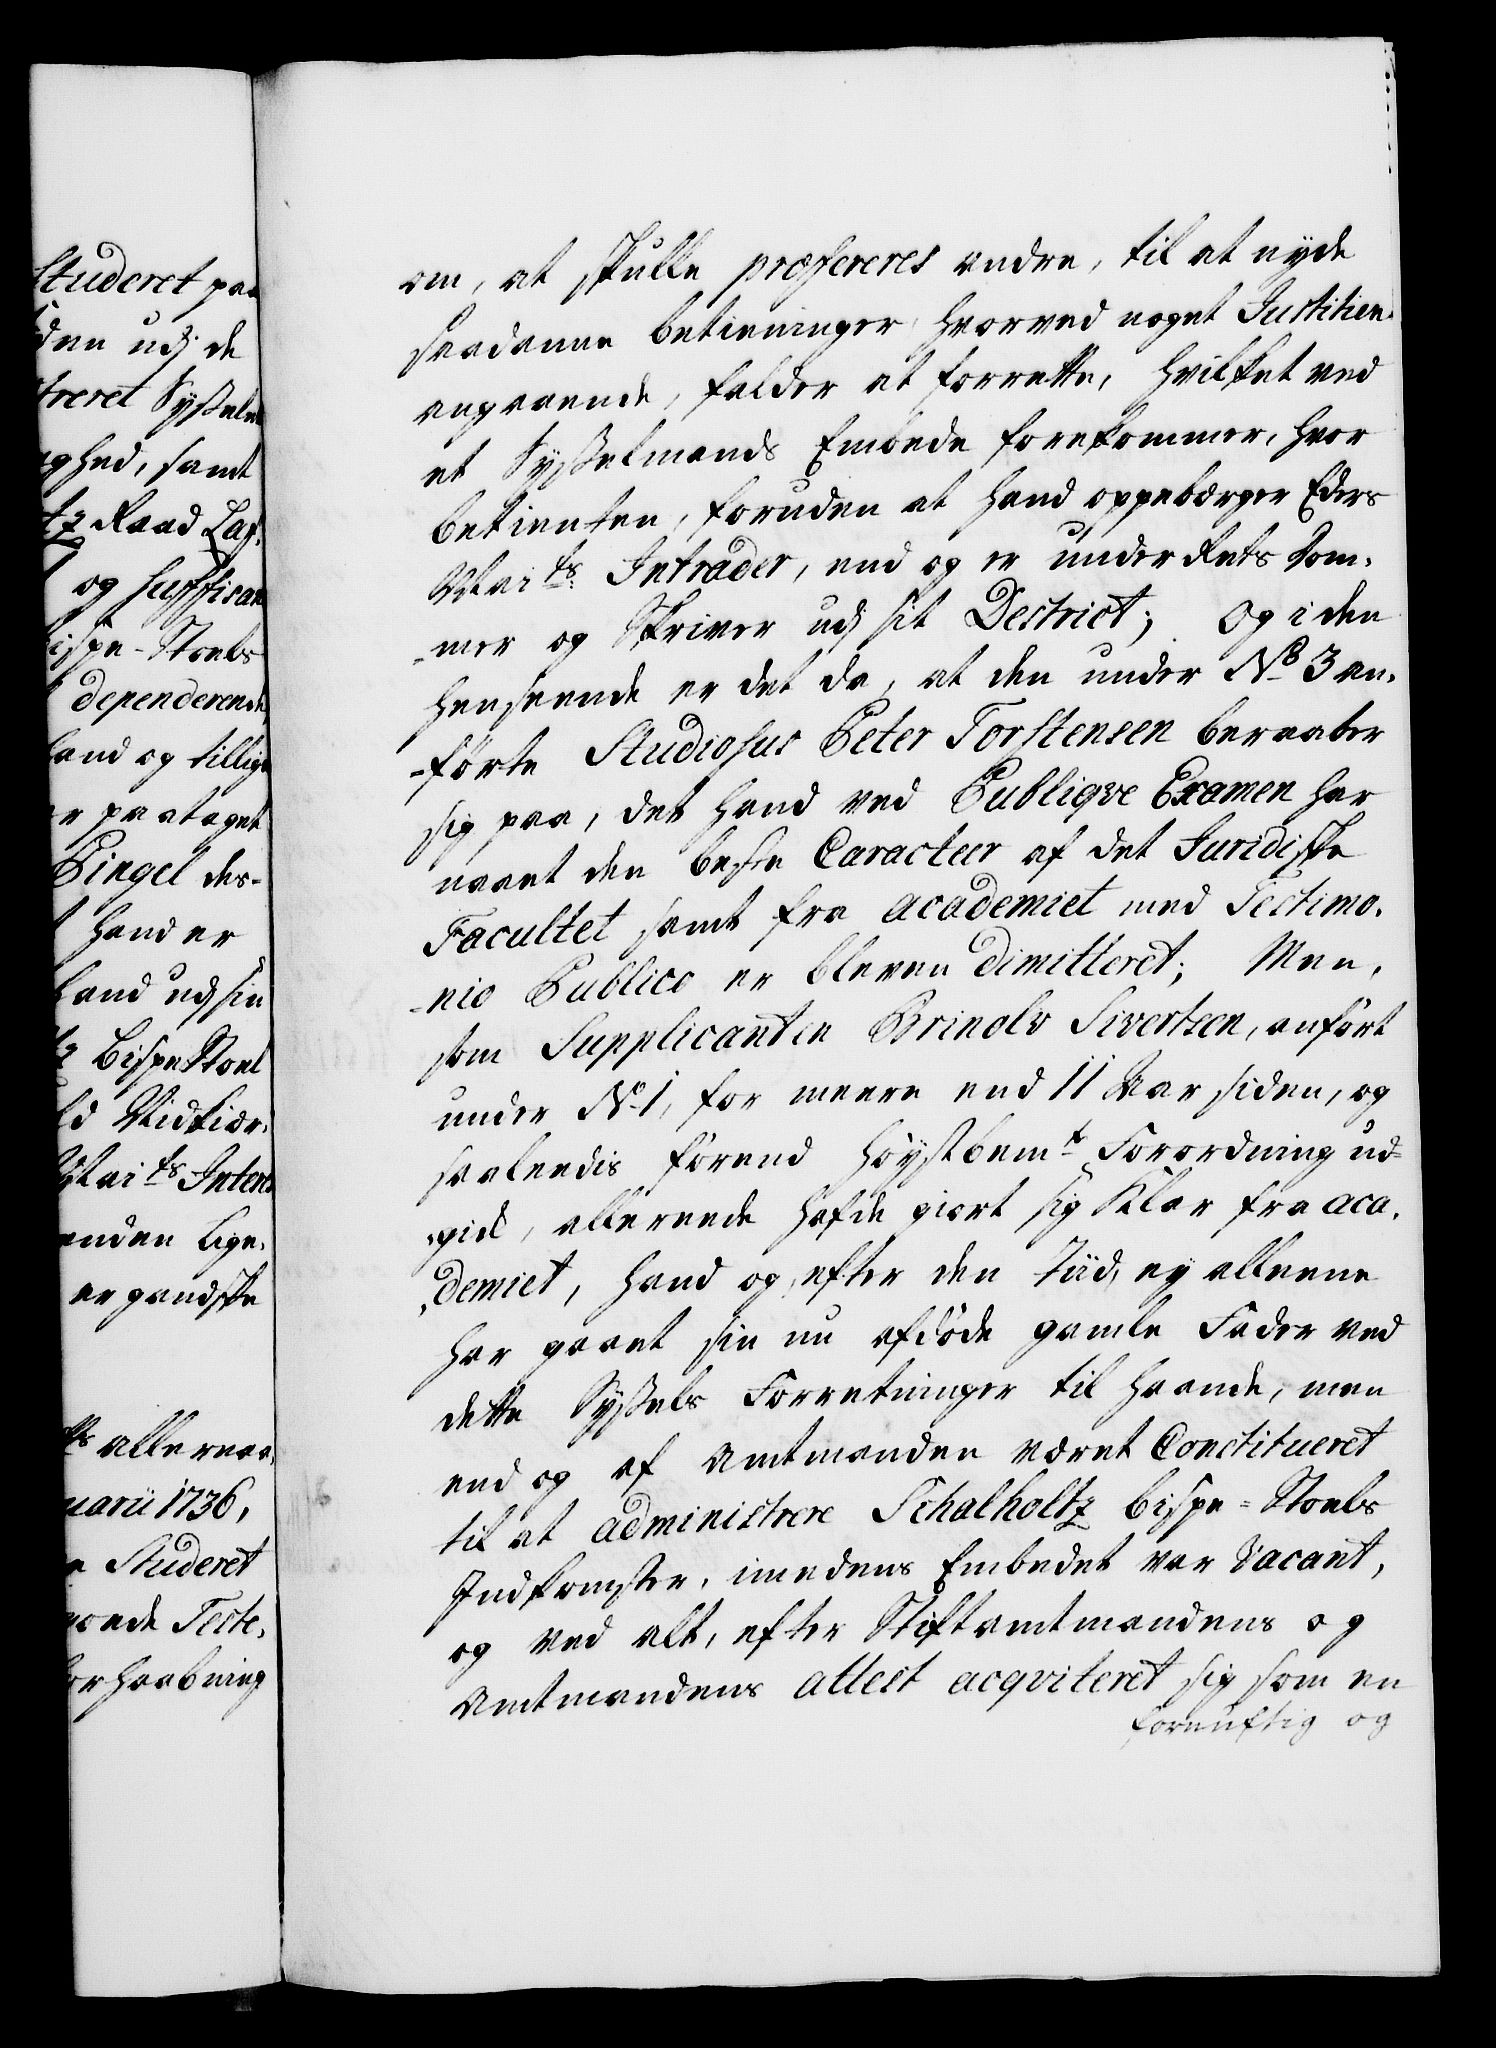 Studeret paa
den udj de
treret Sysselet
ghed, samt
tz Raad Laf-
og suffisan
ispe-Stoels
dependerende
land og tillige
er paataget
Pingel des-
hand er
hand udj sin
tz Bispe Stoel
ld Vidtlør-
Mai ts Inter
anden Lige-
er gandske
ts allernaa-
uarii 1736,
e Studeret
ende Teste-
orhaabning
om, at skulle præfereres andre, til at nyde
saadanne betieninger hvorved noget Justitien
angaaende, falder at forrette, hvilket ved
et Sysselmands Embede forekommer, hvor
betienten, foruden at hand oppebærger Eders
Mai ts Intrader, end og er under Rets Dom-
-mer og Skriver udj sit Destrict; Og i den
henseende er det da, at den under No 3 an-
-førte Studiosus Peter Torstensen beraaber
sig paa, det hand ved Publiqve Examen har
naaet den beste Caracteer af det Juridiske
Facultet samt fra academiet med Testimo-
-nio Publico er bleven dimitteret; Men,
som Supplicanten Brinolv Sivertsen, anført
under No 1, for meere end 11 Aar siden, og
saaleedis førend høystbemte Forordning ud-
-gik, allereede hafde giort sig Klar fra aca-
-demiet, hand og, efter den Tiid, ey alleene
har gaaet sin nu afdøde gamle Fader ved
dette Syssels Forretninger til haande, men
end og af Amtmanden været Constitueret
til at administrere Schalholtz bispe-Stoels
Indkomster, imedens Embedet var vacant,
og ved alt, efter Stiftamtmandens og
Amtmandens attest acqviteret sig som en
fornuftig og